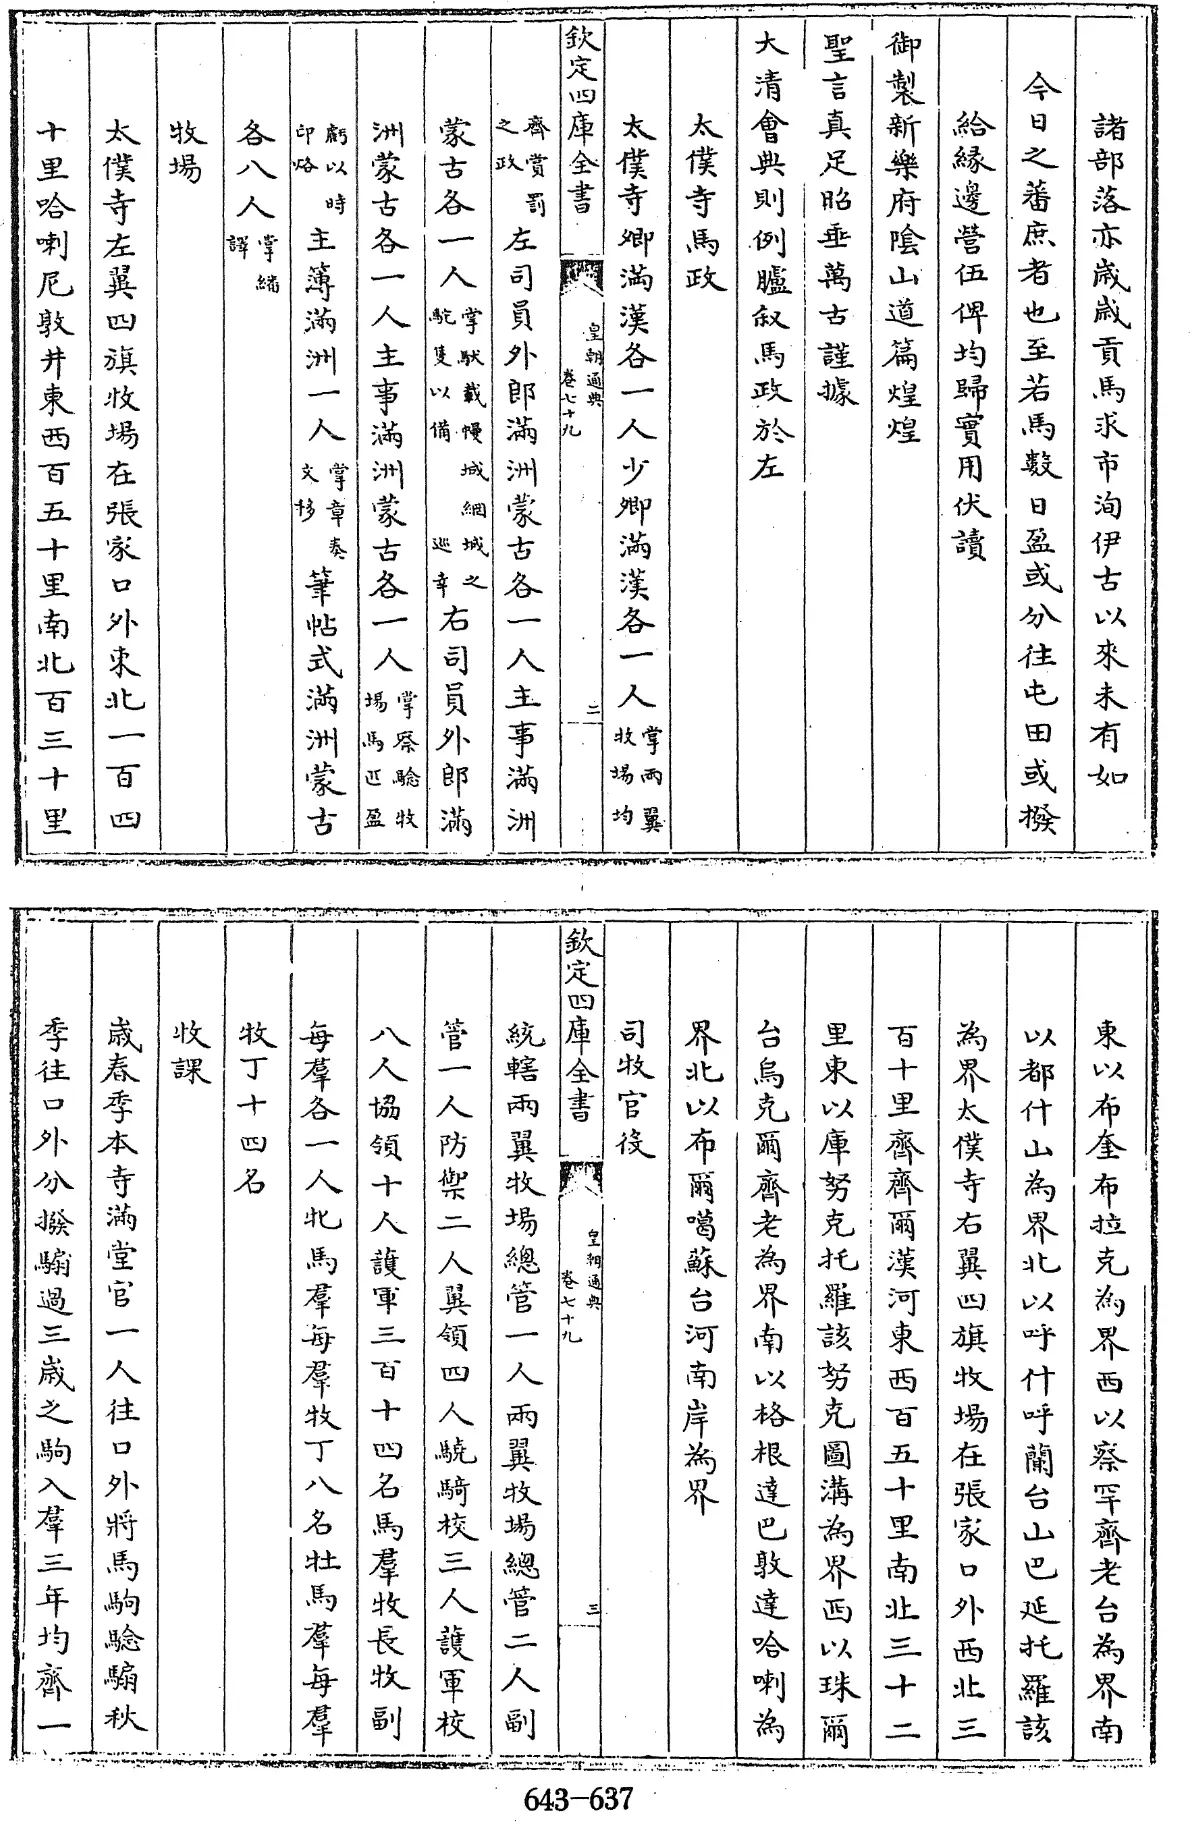 諸部落亦歲歲貢馬求市洵伊古以來未有如
今日之蕃庶者也至若馬數日盈或分往屯田或撥
給緣邊營伍俾均歸實用伏讀
御製新樂府陰山道篇煌煌
聖言真足昭垂萬古謹據
大清會典則例臚敘馬政於左
太僕寺馬政
太僕寺卿滿漢各一人少卿滿漢各一人掌兩翼牧場均
欽定四庫全書 皇朝通典卷七十九 二
齊賞罰之政左司員外郎滿洲蒙古各一人主事滿洲
蒙古各一人掌馱載幔城網城之駝隻以備巡幸右司員外郎滿
洲蒙古各一人主事滿洲蒙古各一人掌察驗牧場馬匹盈
虧以時印烙主簿滿洲一人掌章奏文移筆帖式滿洲蒙古
各八人掌繙譯
牧場
太僕寺左翼四旗牧場在張家口外東北一百四
十里哈喇尼敦井東西百五十里南北百三十里
東以布奎布拉克為界西以察罕齊老台為界南
以都什山為界北以呼什呼蘭台山巴延托羅該
為界太僕寺右翼四旗牧場在張家口外西北三
百十里齊齊爾漢河東西百五十里南北三十二
里東以庫努克托羅該努克圖溝為界西以珠爾
台烏克爾齊老為界南以格根達巴敦達哈喇為
界北以布爾噶蘇台河南岸為界
司牧官役
欽定四庫全書 皇朝通典卷七十九 三
統轄兩翼牧場總管一人兩翼牧場總管二人副
管一人防禦二人翼領四人驍騎校三人護軍校
八人協領十人護軍三百十四名馬羣牧長牧副
每羣各一人牝馬羣每羣牧丁八名牡馬羣每羣
牧丁十四名
牧課
歲春季本寺滿堂官一人往口外將馬駒驗騸秋
季往口外分撥騸過三歲之駒入羣三年均齊一
643-637